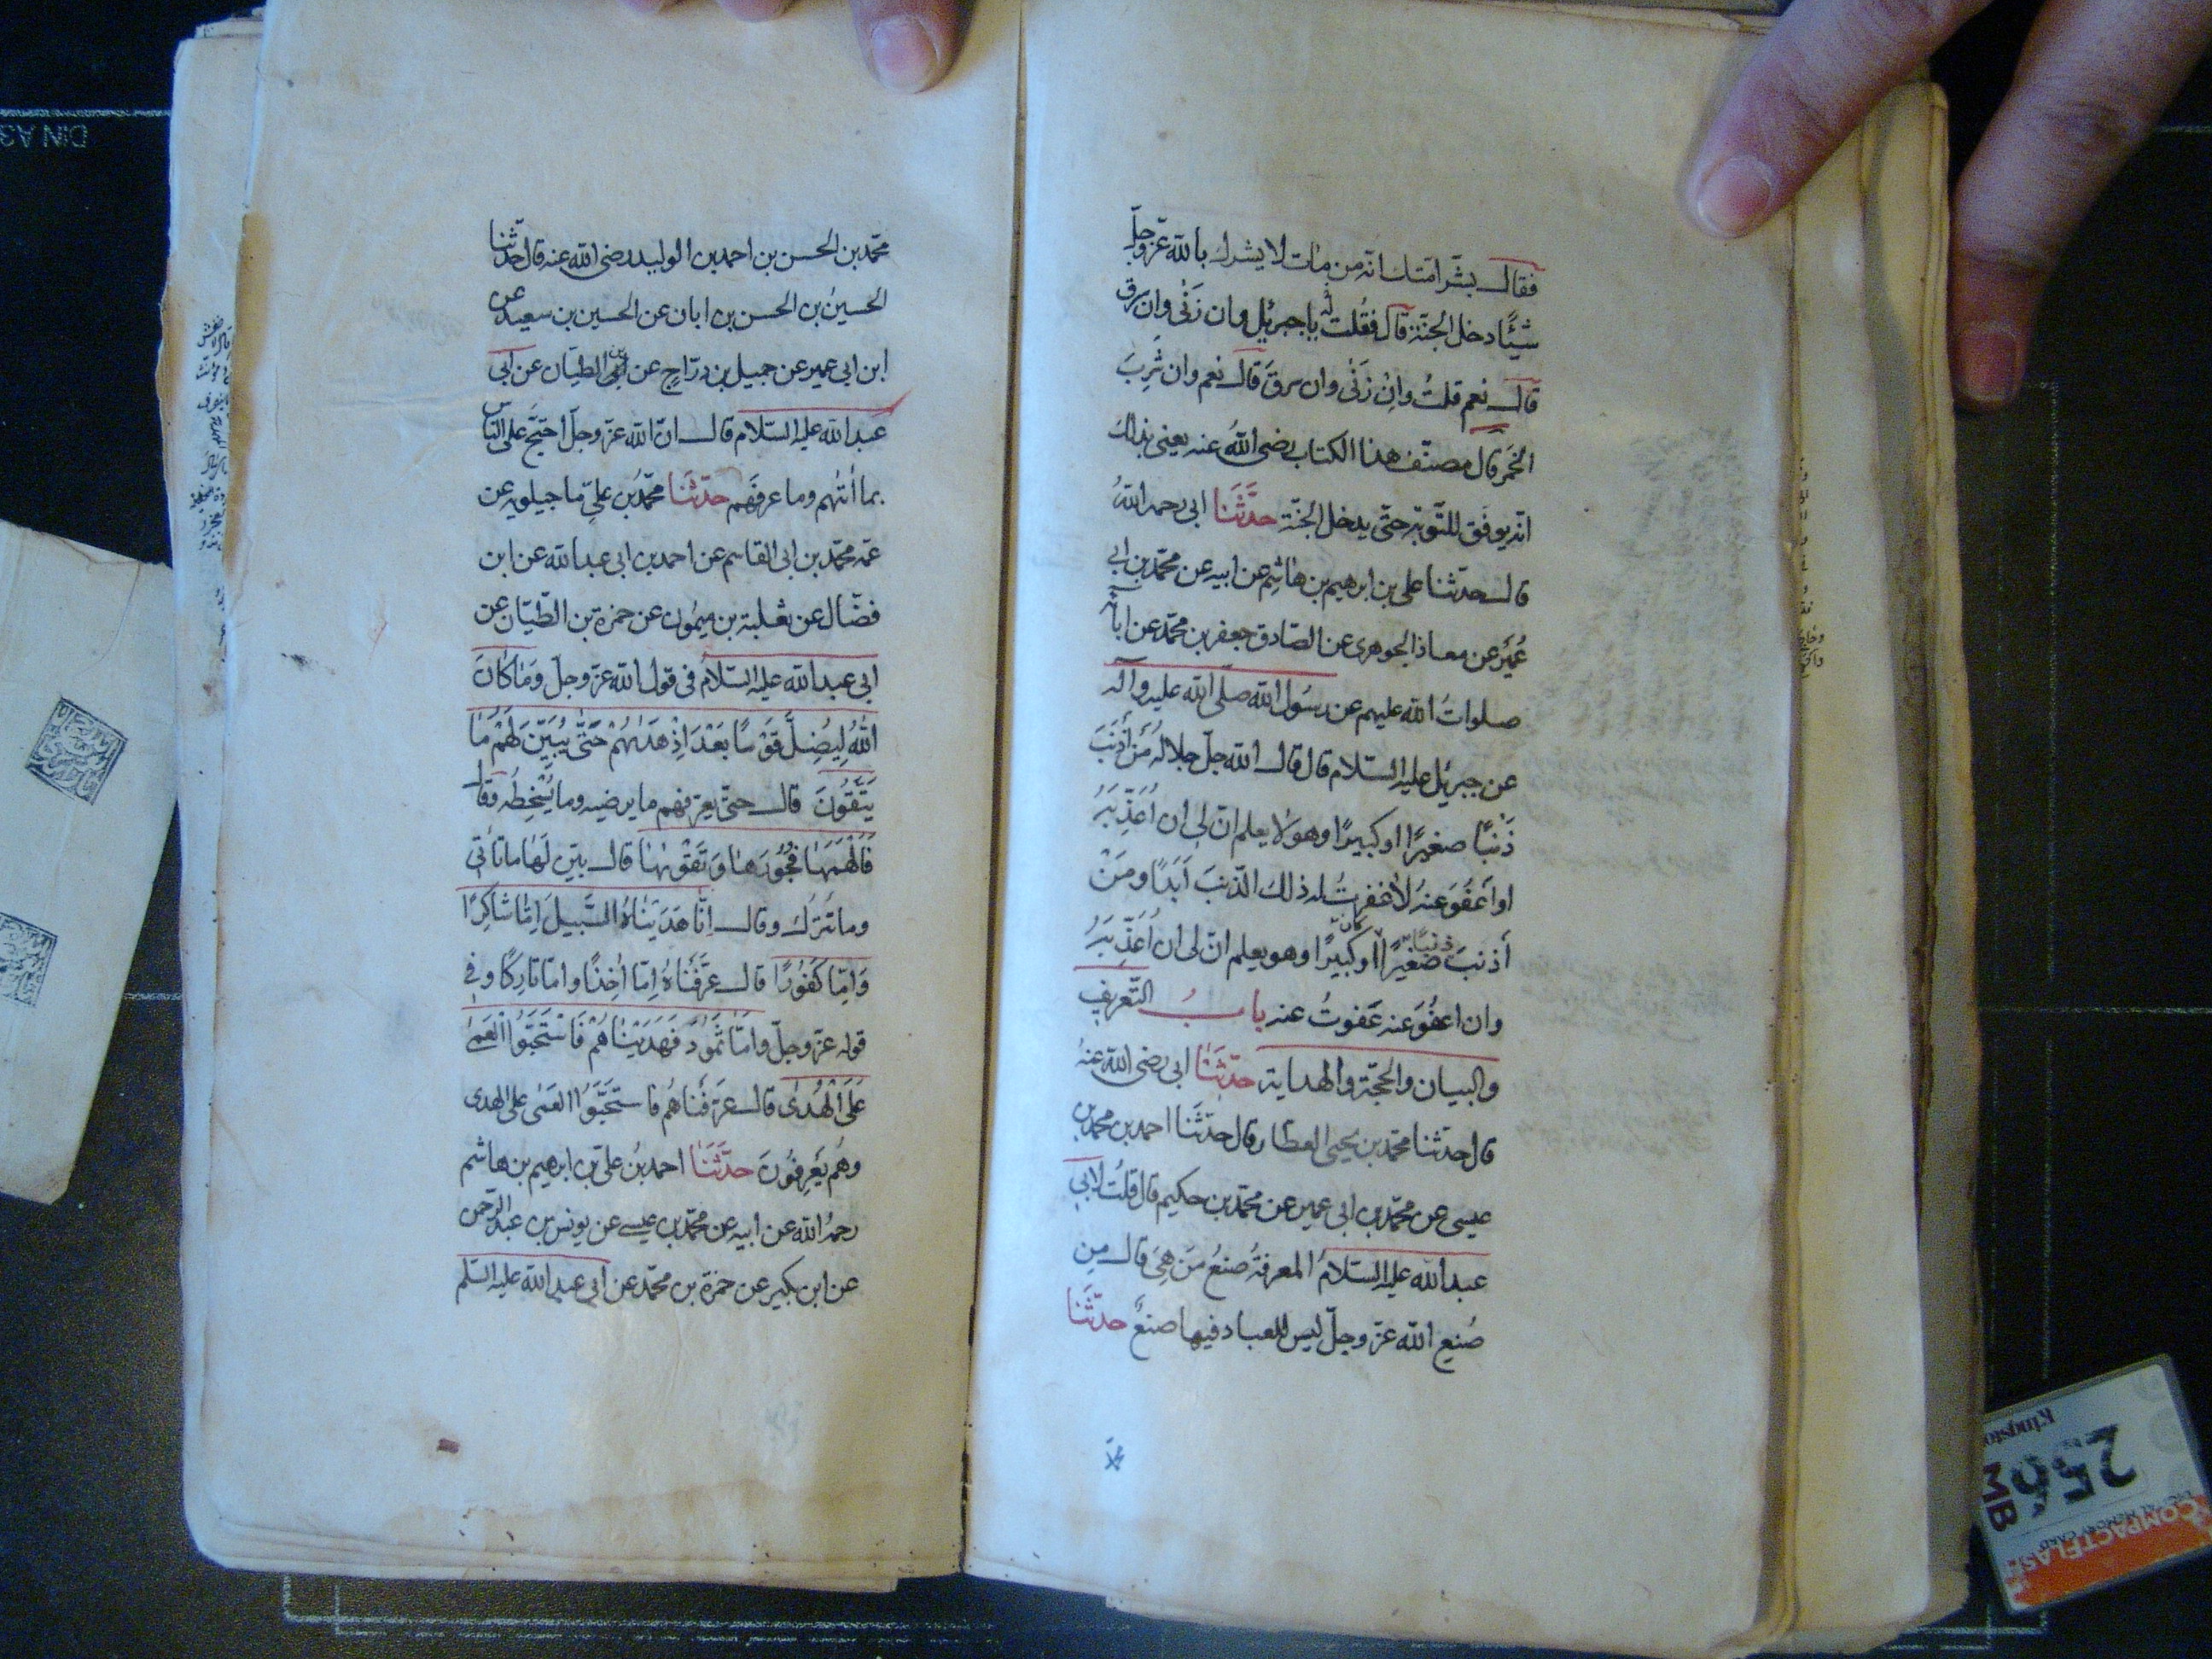 فقال بشّر امّتك انّه من مات لا يشرك بالله عزّ وجلّ
شيئًا دخل الجنّة قال فقُلت يا جبرئيل وان زَنٰى وان سرق
قال نعم قلتُ وانْ زَنٰى وان سرقَ قال نعم وان شَرِبَ
الخمر قال مصنّف هذا الكتاب رضى اللهُ عنه يعنى بذلك
انّه يوفّق للتّوبة حتّى يدخل الجنّة حدَّثَنا ابى رحمه اللهُ
قال حدّثنا على بن ابرهيم بن هاشم عن ابيه عن محمّد بن ابى
عُمَيْر عن معاذ الجوهرى عن الصّادق جعفر بن محمّد عن ابائه
صلواتُ الله عليهم عن رسُول الله صلّى الله عليه وآله
عن جبرئيل عليه السّلام قال قال الله جلّ جلالهُ مَن أذنَبَ
ذَنْبًا صغيرًا او كبيرًا وهو لا يعلم انّ لى ان اُعَذِّبَهُ
او أَعفُوَ عنهُ لا غفرتُ له ذلك الذّنبَ أبَدًا ومَنْ
أذنبَ ذنبًا صَغيرًا كان او كبيرًا وهو يعلم انّ لى ان اُعَذِّبَهُ
وان اعفُوَ عنه عَفوتُ عنه بابُ التّعريف
والبيان والحجّة والهداية حدّثَنا ابى رضى الله عنهُ
قال حدّثنا محمّد بن يحيى العطّار قال حدّثَنا احمد بن محمّد بن
عيسى عن محمّد بن ابى عمير عن محمّد بن حكيم قال قلتُ لابى
عبد الله عليه السّلامُ المعرفةُ صنعُ مَن هِىَ قال مِن
صُنع الله عزّ وجلّ ليس للعباد فيها صنعٌ حدّثَنا
محمّد بن الحسن بن احمد بن الوليد رضى الله عنه قال حدّثنا
الحسينُ بن الحسن بن ابان عن الحسين بن سعيد عن
ابن ابى عمير عن جميل بن درّاجٍ عن ابن الطيّان عن ابى
عبد الله عليه السّلام قال انّ الله عزّ وجلّ احتجّ على النّاس
بما أتٰهم وما عرفَهم حدّثَنا محمّدُ بن علىّ ما جيلويه عن
عمّه محمّد بن ابى القاسم عن احمد بن ابى عبد الله عن ابن
فضّال عن ثعلبة بن ميمُون عن حمزة بن الطّيّان عن
ابى عبد الله عليه السّلامُ فى قول الله عزّ وجلّ وَمَا كَانَ
اللهُ لِيُضِلَّ قَوْمًا بَعْدَ اِذْ هَدٰىهُمْ حَتّٰى يُبَيِّنَ لَهُمْ مَا
يَتَّقُونَ قال حتّى يعرّفهم ما يرضيه وما يُسْخِطُه وقال
فَاَلْهَمَهٰا فُجُوُرَهٰا وَتَقْوٰىهٰا قال بيّن لَها ما تأتى
وما تَتركُ وقال اِنّا هَدَيْنٰاهُ السَّبيلَ اِمّا شَاكِرًا
وَاِمّا كَفُوُرًا قال عرَّفْنَاهُ اِمّا اٰخِذًا وامّا تارِكًا وفى
قوله عزّ وجلّ وامّا ثَمُودُ فَهَدَيْنٰاهُمْ فَاسْتَحَبُّوا الْعَمىٰ
عَلَى الْهُدىٰ قال عَرَّفْنَاهُم فاستَحَبُّوُا العَمٰى على الهدى
وهُم يَعرِفُونَ حدَّثَنَا احمد بنُ علىّ بن ابرهيم بن هاشم
رحمهُ الله عن ابيه عن محمّد بن عيسى عن يونس بن عبد الرّحمن
عن ابن بكير عن حمزة بن محمّد عن ابى عبد الله عليه السّلم
DIN A3
Kingston
256
MB
COMPACTFLASH